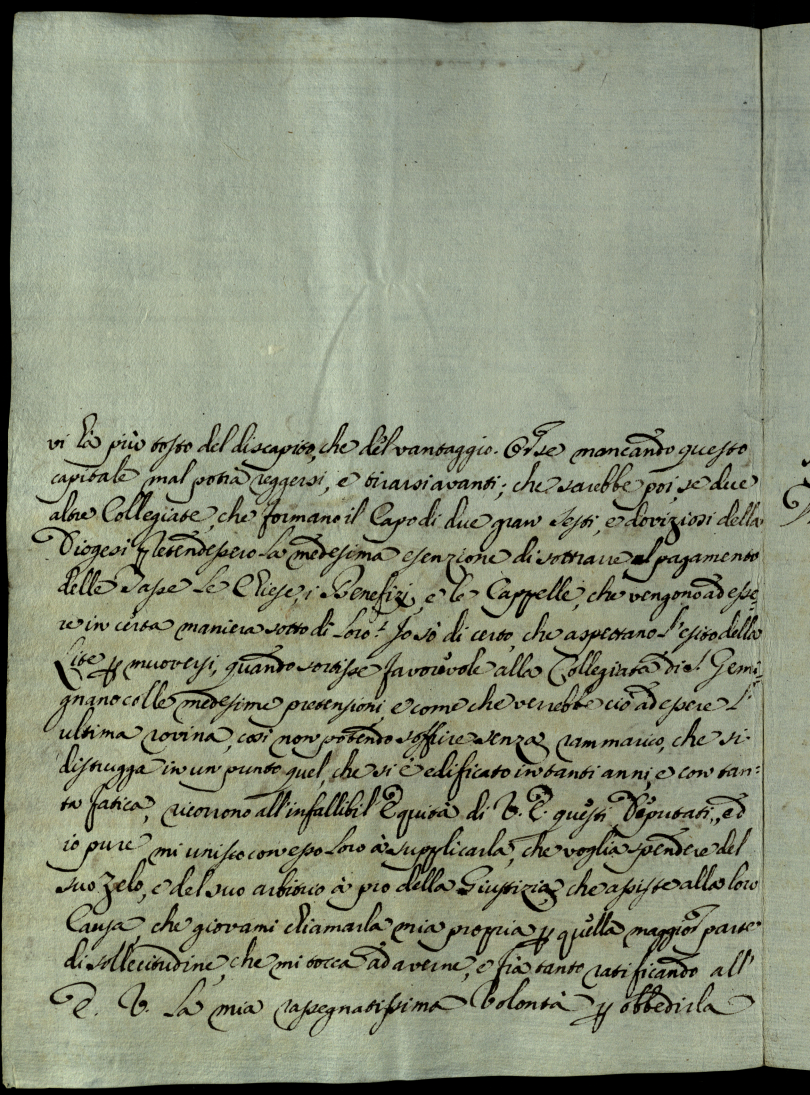 vi hà più tosto del discapito, che del vantaggio. Or se mancando questo
capitale mal potrà reggersi, e tirarsi avanti; che sarebbe poi se due
altre Collegiate, che formano il Capo di due gran Sesti, e doviziosi della
Diogesi pretendessero la medesima esenzione di sottrarre al pagamento
delle Tasse le Chiese, i Benefizj, e le Cappelle, che vengono ad esse,
re in certa maniera sotto di loro? Io sò di certo, che aspettano l'esito della
Lite p muoversi, quando sortisse favorevole alla Collegiata di S. Gemi,
gnano colle medesime pretensioni, e come che verrebbe ciò ad essere l'
ultima rovina, così non potendo soffrire senza rammarico, che si
distrugga in un punto quel, che si è edificato in tanti anni, e con tan=
ta fatica, ricorrono all'infallibil Equità di V. E. questi Deputati, ed
io pure mi unisco con esso loro à supplicarla, che voglia spendere del
suo zelo, e del suo arbitrio à pro della Giustizia, che assiste alla loro
Causa che giovami chiamarla mia propria p quella maggior parte
di sollecitudine, che mi tocca ad averne, e frà tanto ratificando all'
E. V. la mia rassegnatissima Volontà p obbedirla